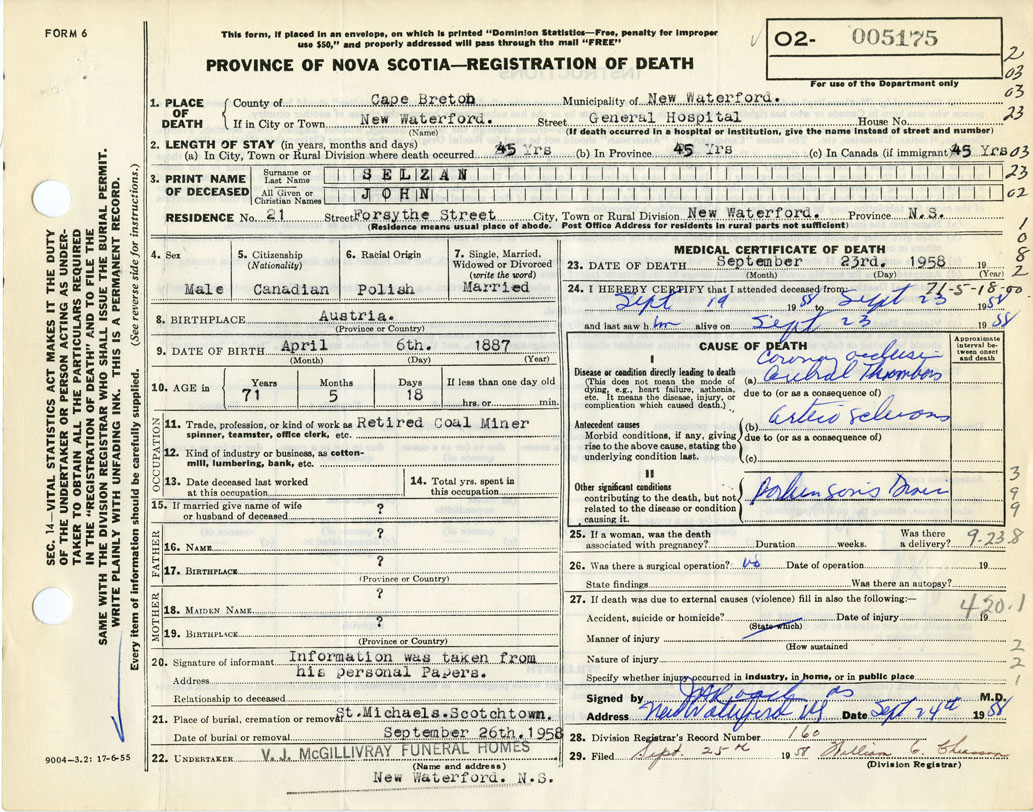 FORM 6
This form, if placed in an envelope, on which is printed "Dominion Statistics—Free, penalty for improper
use $50," and properly addressed will pass through the mail "FREE"
PROVINCE OF NOVA SCOTIA—REGISTRATION OF DEATH
O2- 005175
For use of the Department only
2
03
03
23
03
23
02
1
0
8
2
SEC. 14—VITAL STATISTICS ACT MAKES IT THE DUTY
OF THE UNDERTAKER OR PERSON ACTING AS UNDER-
TAKER TO OBTAIN ALL THE PARTICULARS REQUIRED
IN THE "REGISTRATION OF DEATH" AND TO FILE THE
SAME WITH THE DIVISION REGISTRAR WHO SHALL ISSUE THE BURIAL PERMIT.
WRITE PLAINLY WITH UNFADING INK. THIS IS A PERMANENT RECORD.
Every item of information should be carefully supplied. (See reverse side for instructions.)
1. PLACE OF DEATH
County of Cape Breton Municipality of New Waterford.
If in City or Town New Waterford. Street General Hospital House No.
(Name) (If death occurred in a hospital or institution, give the name instead of street and number)
2. LENGTH OF STAY (in years, months and days)
(a) In City, Town or Rural Division where death occurred 45 Yrs (b) In Province 45 Yrs (c) In Canada (if immigrant) 45 Yrs
3. PRINT NAME OF DECEASED
Surname or Last Name SELZAN
All Given or Christian Names JOHN
RESIDENCE No. 21 Street Forsythe Street City, Town or Rural Division New Waterford. Province N.S.
(Residence means usual place of abode. Post Office Address for residents in rural parts not sufficient)
4. Sex
Male
5. Citizenship (Nationality)
Canadian
6. Racial Origin
Polish
7. Single, Married, Widowed or Divorced (write the word)
Married
8. BIRTHPLACE Austria.
(Province or Country)
9. DATE OF BIRTH April 6th. 1887
(Month) (Day) (Year)
10. AGE in Years Months Days If less than one day old
71 5 18 hrs. or min.
OCCUPATION
11. Trade, profession, or kind of work as Retired Coal Miner
spinner, teamster, office clerk, etc.
12. Kind of industry or business, as cotton-
mill, lumbering, bank, etc.
13. Date deceased last worked
at this occupation
14. Total yrs. spent in
this occupation
15. If married give name of wife
or husband of deceased ?
FATHER
16. NAME ?
17. BIRTHPLACE ?
(Province or Country)
MOTHER
18. MAIDEN NAME ?
19. BIRTHPLACE ?
(Province or Country)
20. Signature of informant Information was taken from
Address his personal Papers.
Relationship to deceased
21. Place of burial, cremation or removal St.Michaels.Scotchtown.
Date of burial or removal September 26th.1958
22. UNDERTAKER V. J. McGILLIVRAY FUNERAL HOMES
(Name and address)
New Waterford. N.S.
9004—3.2: 17-6-55
MEDICAL CERTIFICATE OF DEATH
23. DATE OF DEATH September 23rd. 1958 19
(Month) (Day) (Year)
71-5-18-00
24. I HEREBY CERTIFY that I attended deceased from:
Sept 19 1958 to Sept 23 1958
and last saw him alive on Sept 23 1958
CAUSE OF DEATH
Approximate interval between onset and death
I
Disease or condition directly leading to death
(This does not mean the mode of
dying, e.g., heart failure, asthenia,
etc. It means the disease, injury, or
complication which caused death.)
Coronary occlusion
(a) Cerebral Thrombosis
due to (or as a consequence of)
Antecedent causes
Morbid conditions, if any, giving
rise to the above cause, stating the
underlying condition last.
(b) Arterio Sclerosis
due to (or as a consequence of)
(c)
II
Other significant conditions
contributing to the death, but not
related to the disease or condition
causing it.
Parkinson's Disease
3
9
9
25. If a woman, was the death
associated with pregnancy? Duration weeks. Was there
a delivery?
9-23.8
26. Was there a surgical operation? no Date of operation 19
State findings Was there an autopsy?
27. If death was due to external causes (violence) fill in also the following:—
420.1
Accident, suicide or homicide? Date of injury 19
(State which)
Manner of injury
(How sustained
Nature of injury
2
2
1
Specify whether injury occurred in industry, in home, or in public place
Signed by M.D.
Address New Waterford NS Date Sept 24th 1958
28. Division Registrar's Record Number 160
29. Filed Sept. 25th 1958 William C.
(Division Registrar)